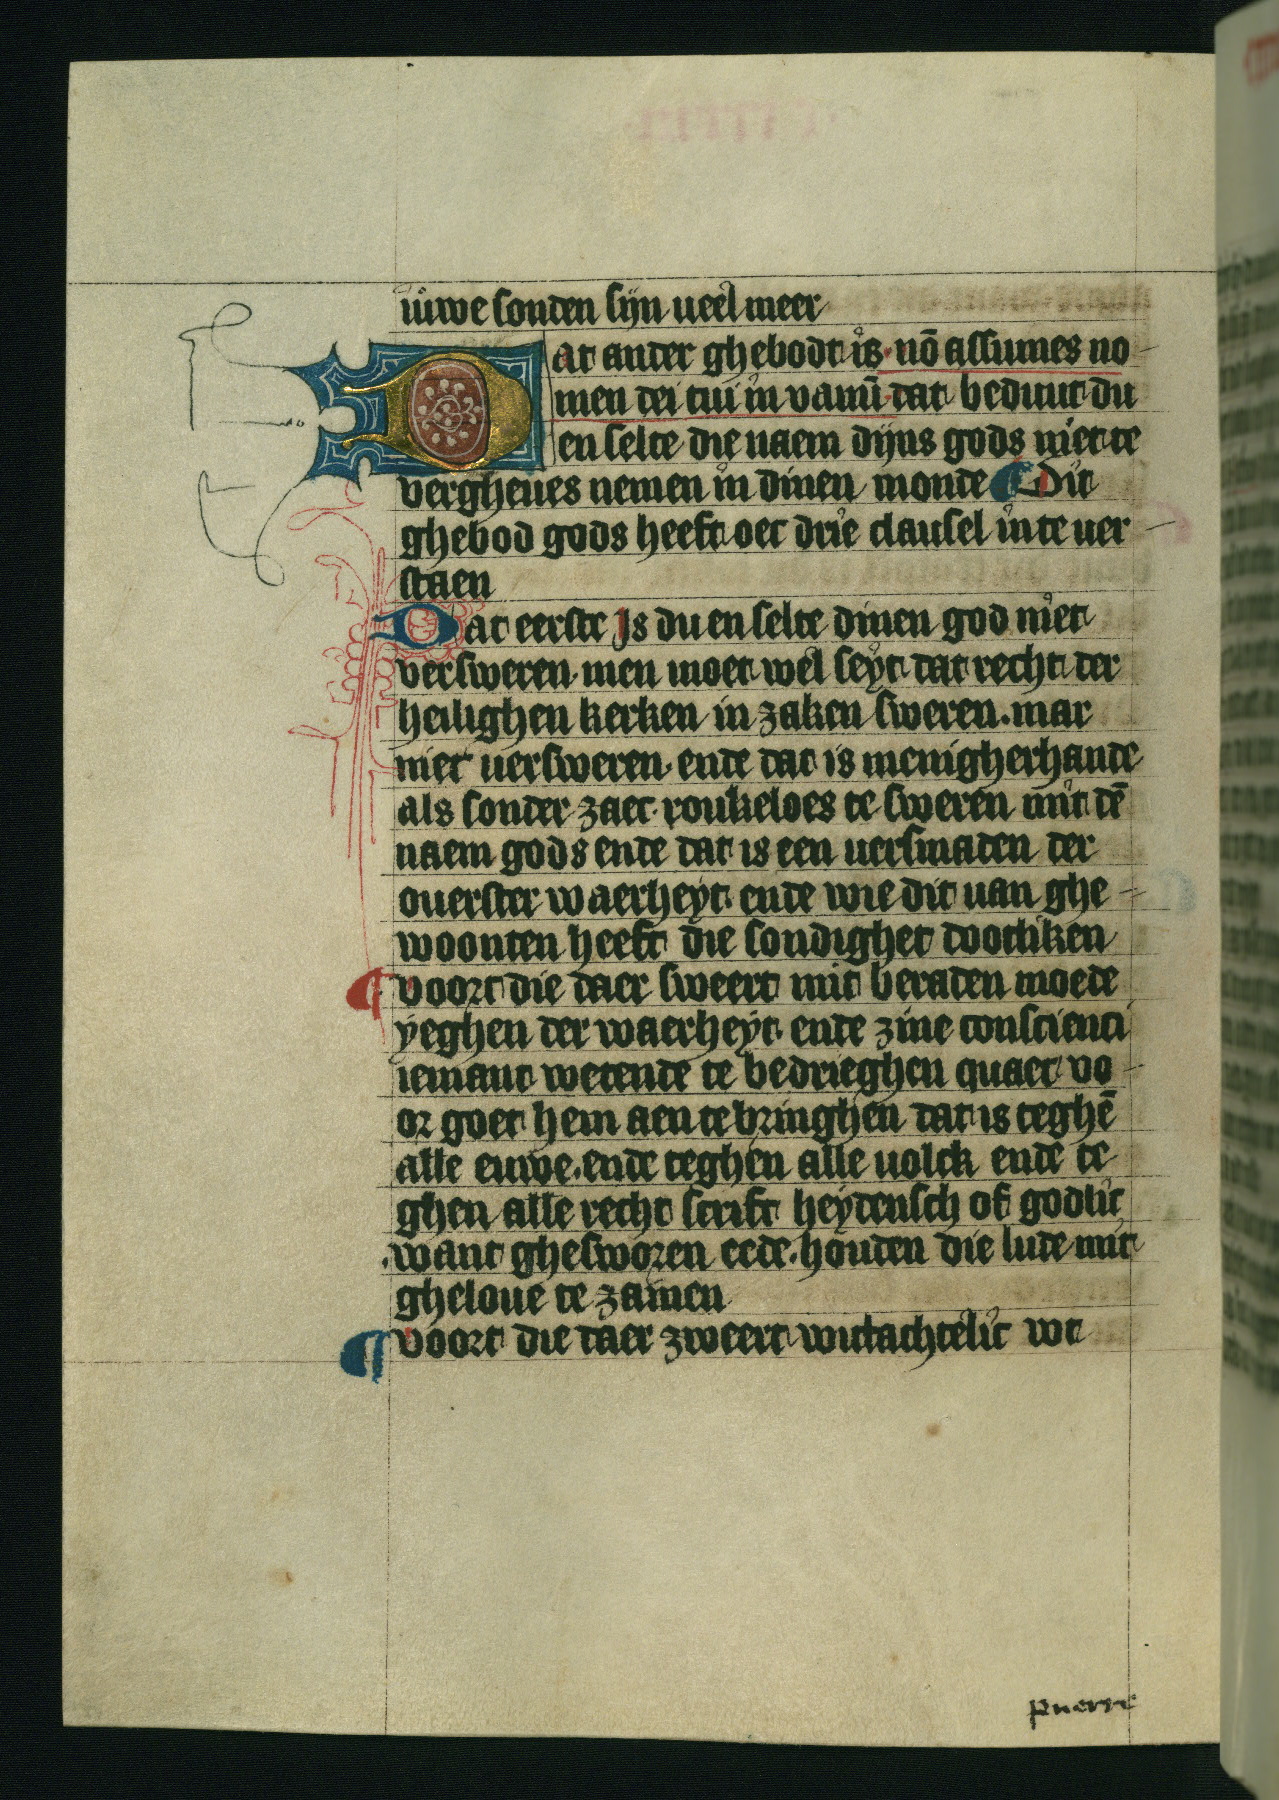 iuwe sonden sijn ueel meer
Dat ander ghebodt is nō assumes no-
men dei tui in vanū dat beduut du
en selte die naem dijns gods niet te
vergheues nemen in dinen monde ¶ Dit
ghebod gods heeft oec drie clausel in te uer-
staen
Dat eerste Js du en selte dinen god niet
versweren. men moet wel seyt dat recht der
heilighen kerken in zaken sweren. mar
niet uersweren. ende dat is menigherhande
als sonder zaec roukeloes te sweren mit dē
naem gods ende dat is een uersmaden der
ouerster waerheyt. ende wie dit uan ghe-
woonten heeft die sondighet dootliken
¶ voort die daer sweert mit beraden moede
yeghen der waerheyt. ende zine conscienci
iemant wetende te bedrieghen quaet vo-
or goet hem aen te bringhen dat is teghē
alle euwe. ende teghen alle uolck ende te
ghen alle recht scrift heydensch of godlic
want ghesworen eede. houden die lude mit
gheloue te zamen
¶ voort die daer zweert wittachtelic wt